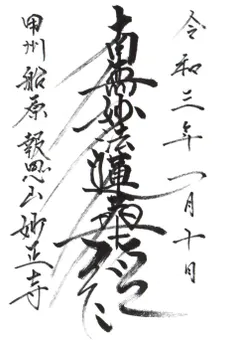 令和三年一月十日
南無妙法蓮華経
甲州船原 報恩山 妙正寺